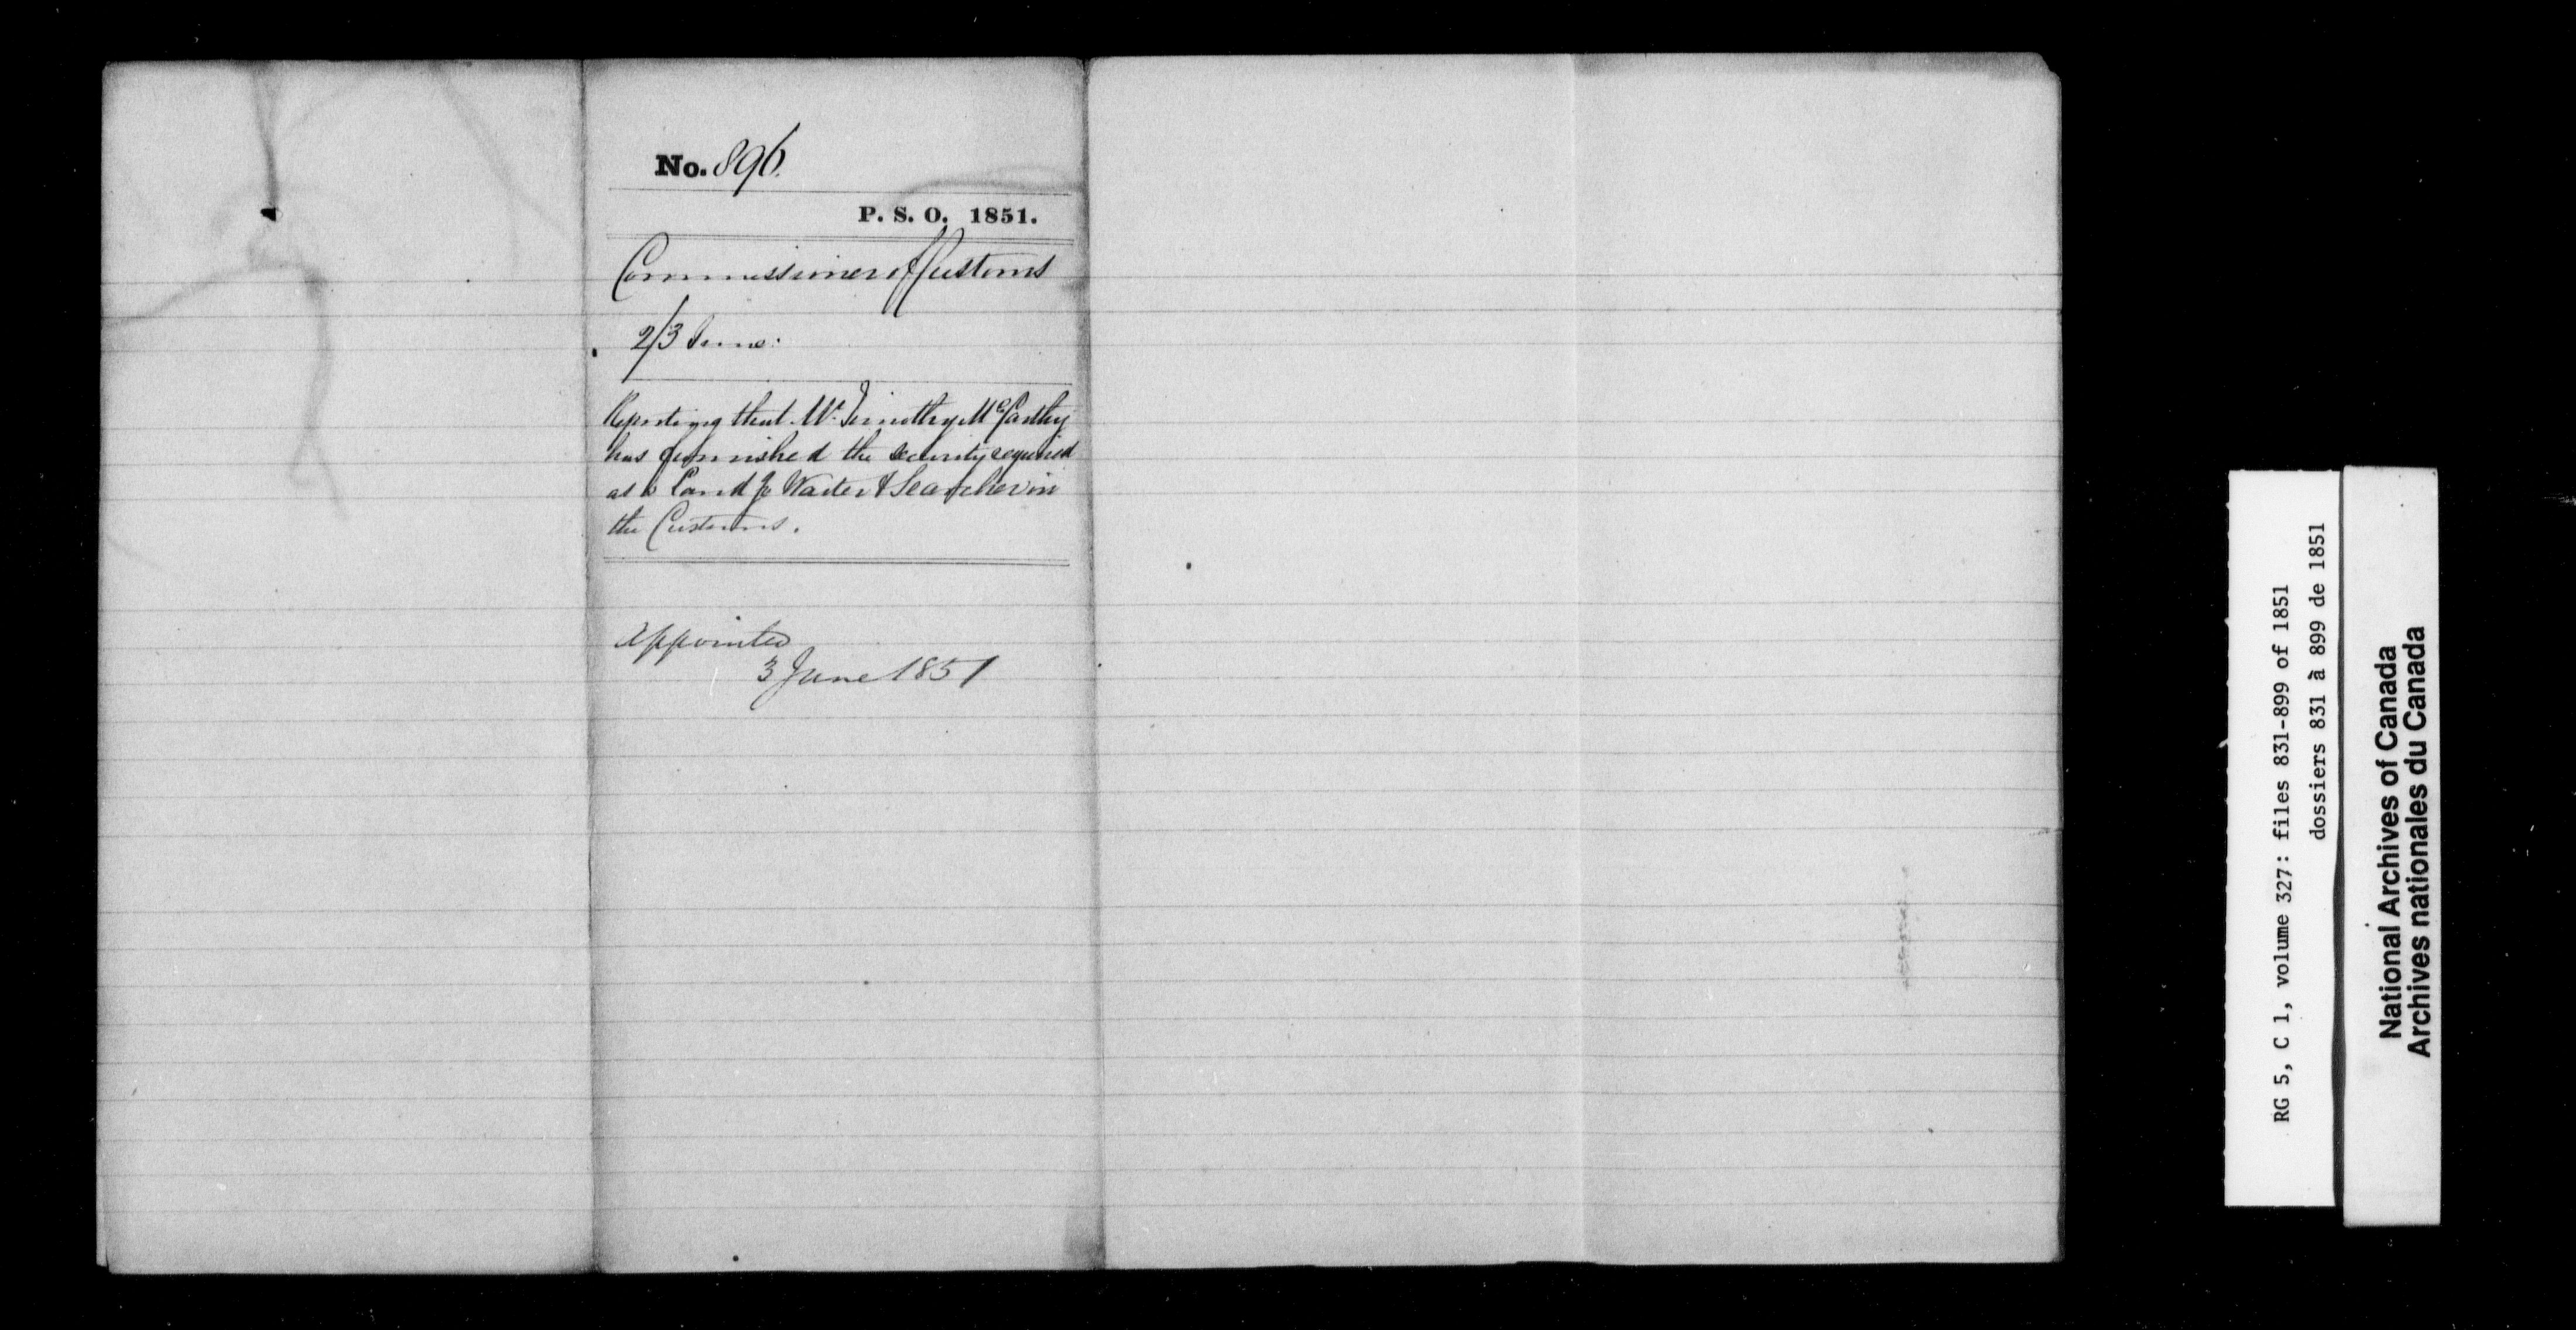 No. 896.
P. S. O. 1851.
Commissioner of Customs
2/3 June.
Reporting that Mr. Timothy McCarthy
has furnished the security required
as a Landg Waiter & Searcher in
the Customs.
Appointed
3 June 1851
RG 5, C 1, volume 327: files 831-899 of 1851
dossiers 831 à 899 de 1851
National Archives of Canada
Archives nationales du Canada